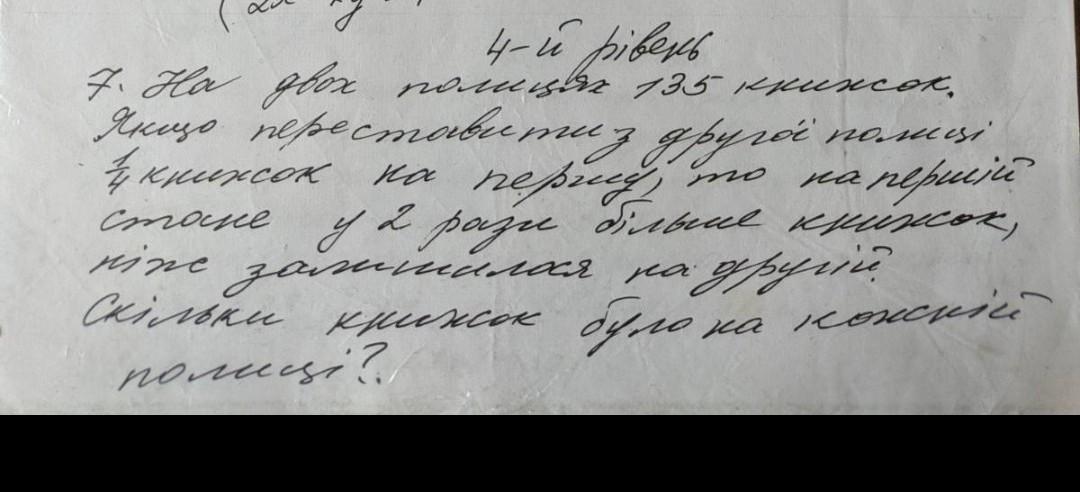 4-й рівень
7. На двох полицях 135 книжок.
Якщо переставити з другої полиці
1/4 книжок на першу, то на першій
стане у 2 рази більше книжок,
ніж залишилося на другій.
Скільки книжок було на кожній
полиці?